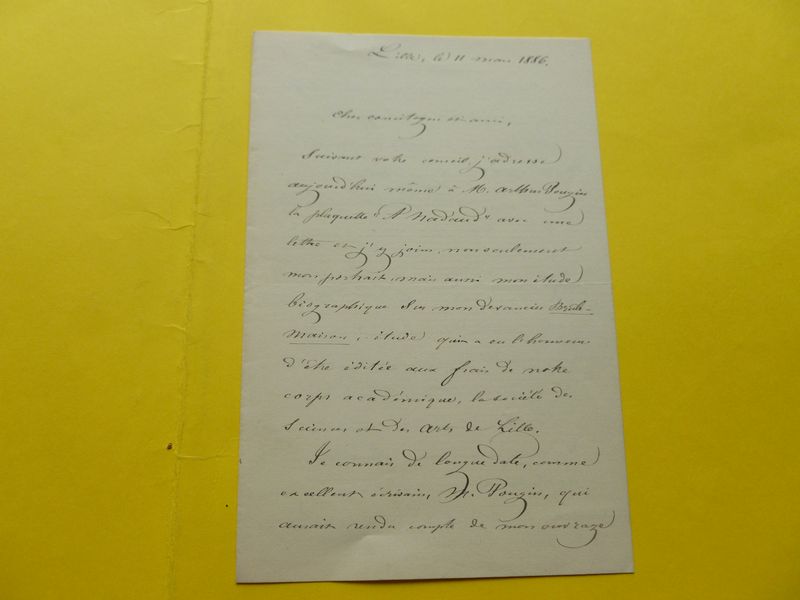 Lille, le 11 mars 1886.
Cher concitoyen et ami,
Suivant votre conseil, j'adresse
aujourd'hui même à M. Arthur Pougin
la plaquette "A Nadaud" avec une
lettre et j'y joins, non seulement
mon portrait, mais aussi mon étude
biographique sur mon devancier Brûle-
Maison ; étude qui a eu l'honneur
d'être éditée aux frais de notre
corps académique, la société des
Sciences et des Arts de Lille.
Je connais de longue date, comme
excellent écrivain, M. Pougin, qui
aurait rendu compte de mon ouvrage